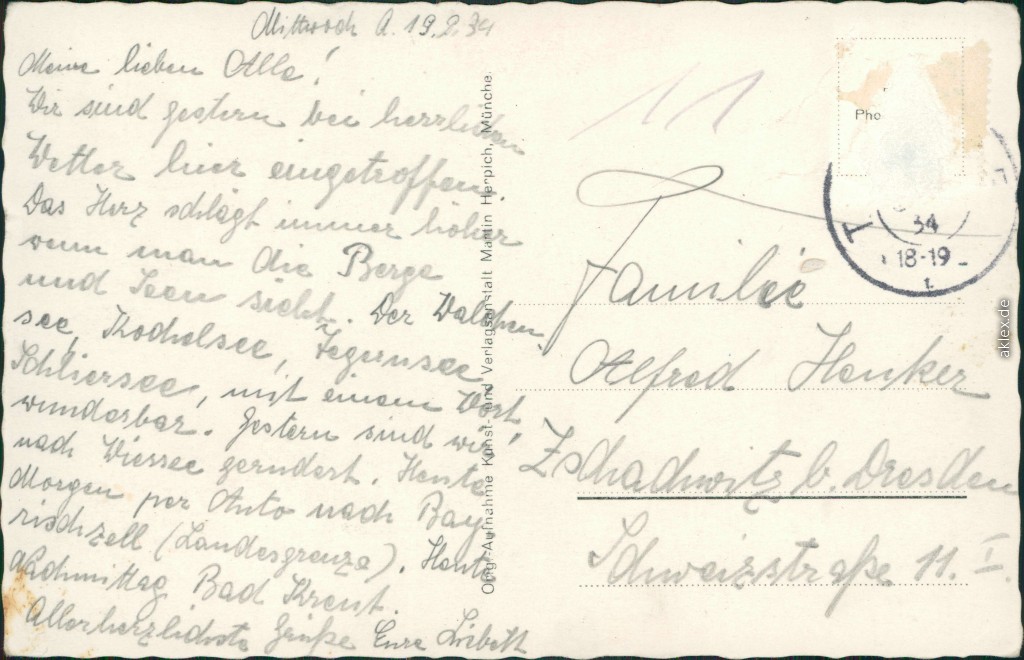 Mittwoch d. 19.9.34
Meine lieben Alle!
Wir sind gestern bei herrlichem
Wetter hier eingetroffen.
Das Herz schlägt immer höher
wenn man die Berge
und Seen sieht. Der Walchen
see, Kochelsee, Tegernsee
Schliersee, mit einem Wort,
wunderbar. Gestern sind wir
nach Wiessee gerudert. Heute
Morgen per Auto nach Bay
rischzell (Landesgrenze). Heute
Nachmittag Bad Kreut.
Allerherzlichste Grüße Eure Lisbeth
Orig.-Aufnahme Kunst- und Verlagsanstalt Martin Herpich, Münche.
11
Pho
T
34
18-19
1.
Familie
Alfred Henker
Zschachwitz b. Dresden
Schweizstraße 11. I.
aklex.de